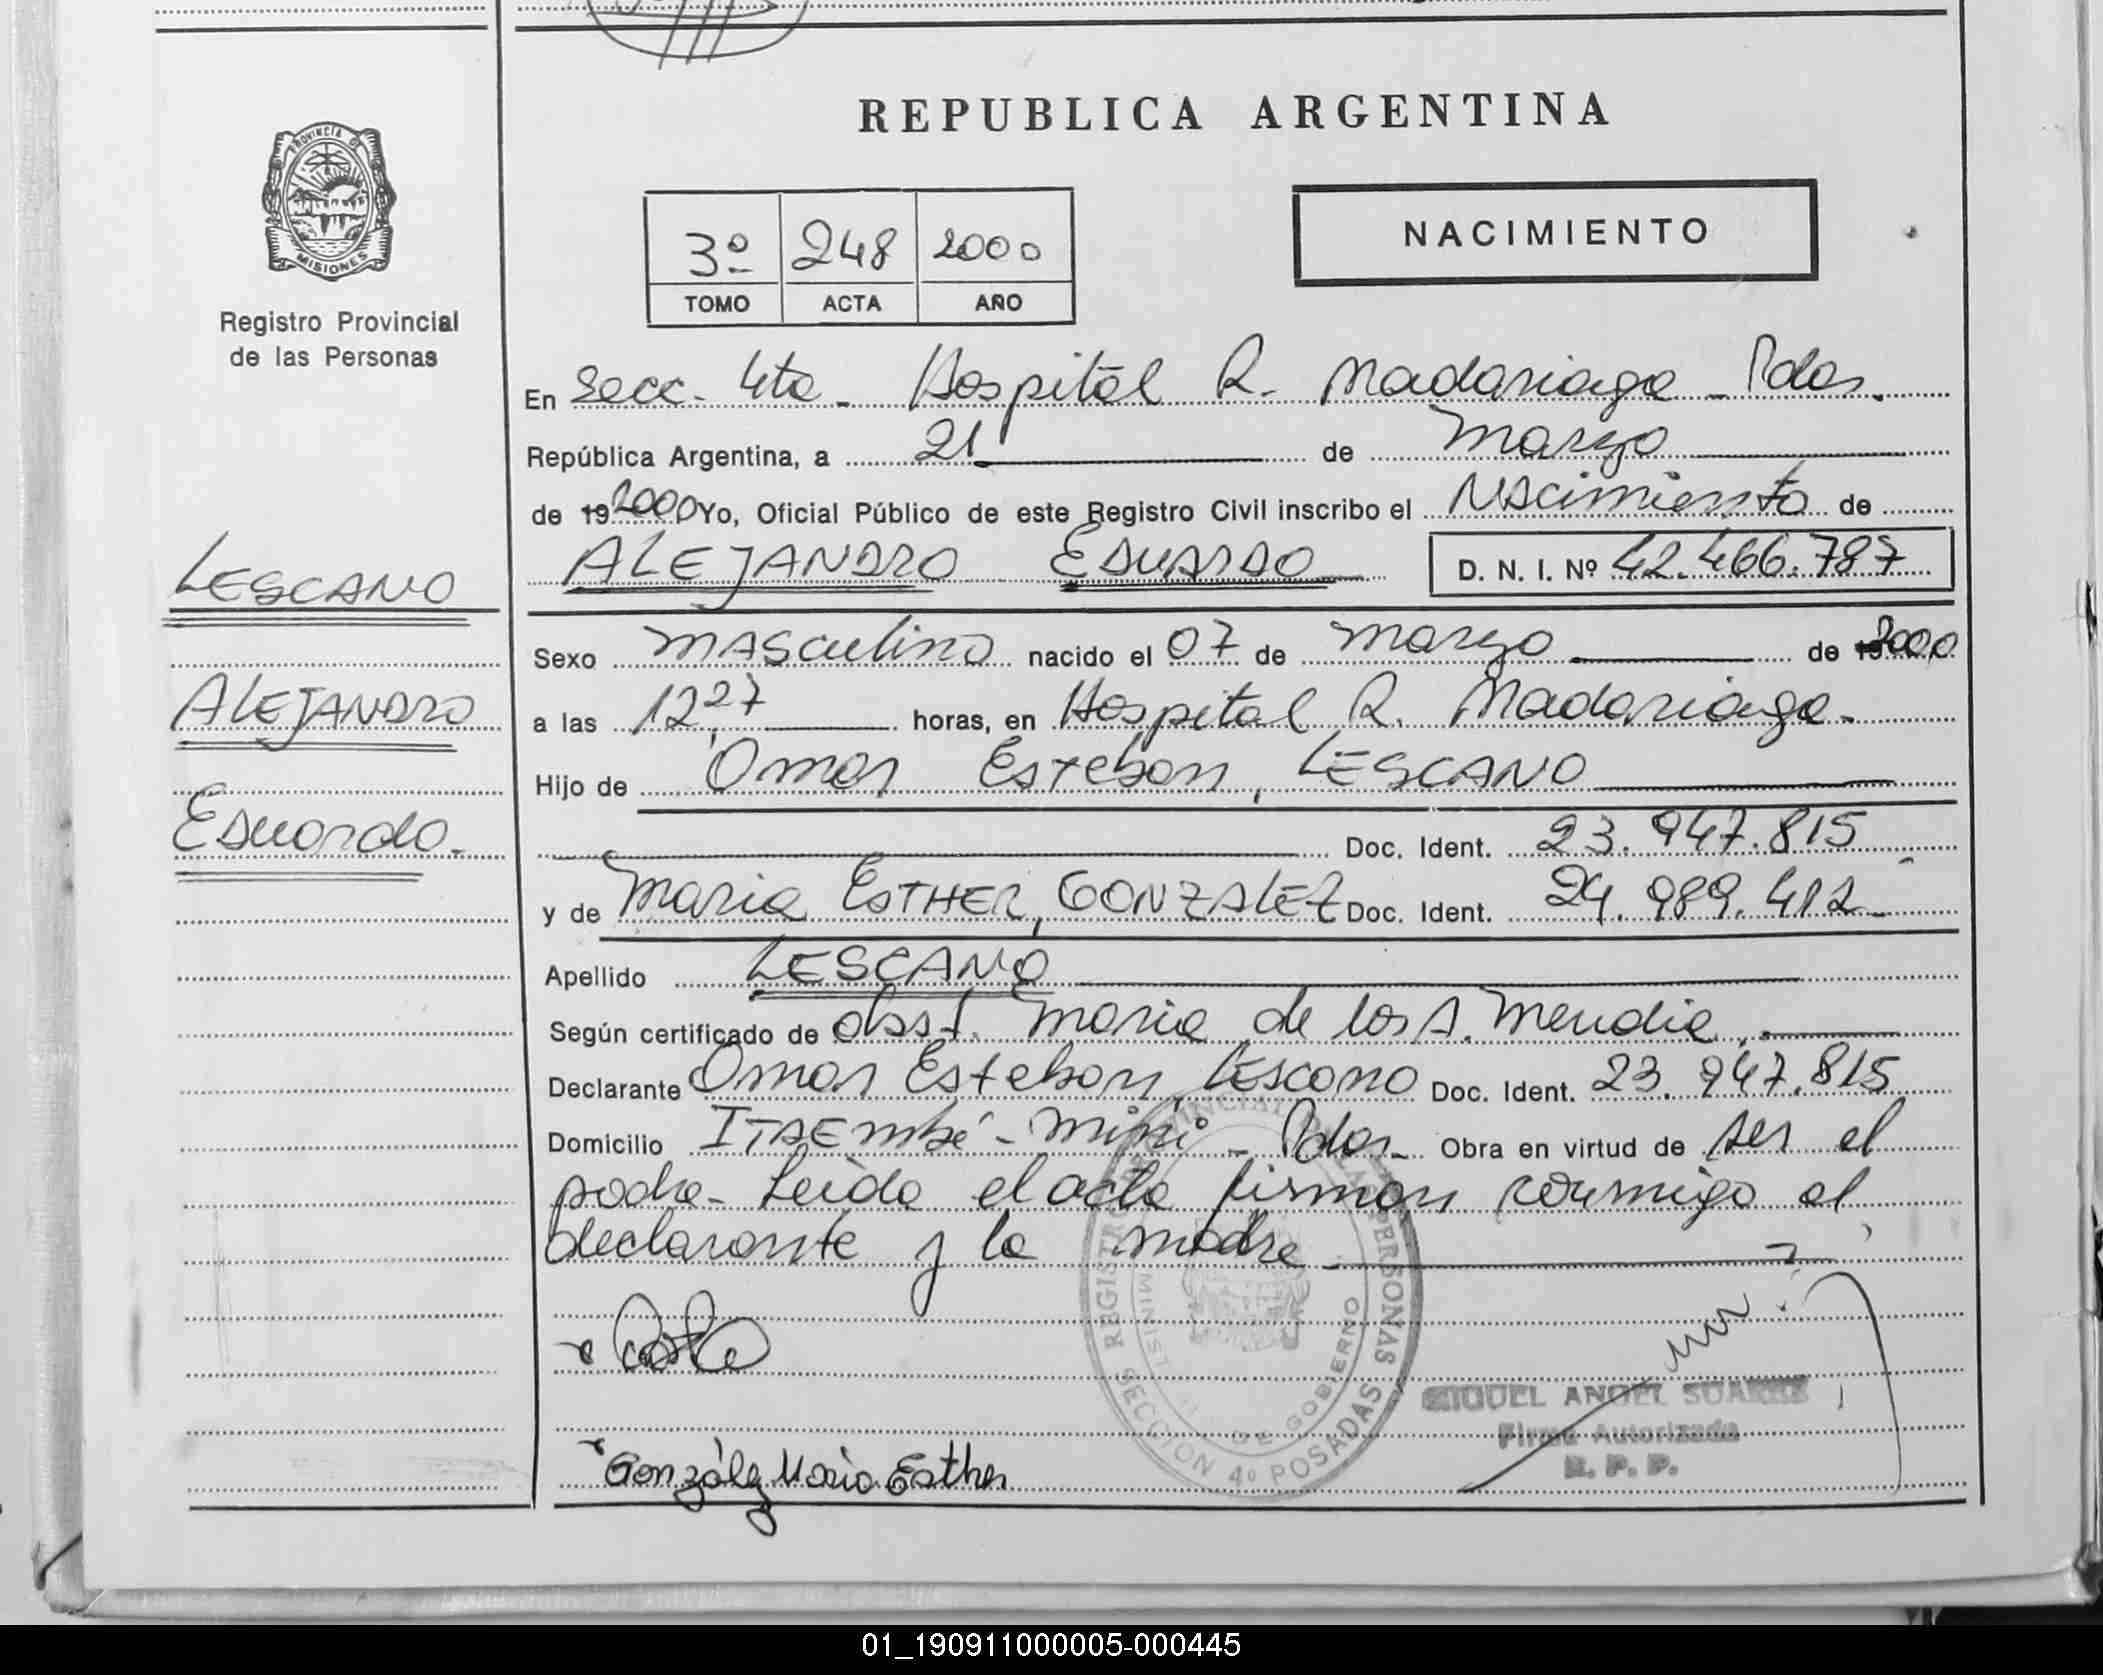 PROVINCIA DE
MISIONES
Registro Provincial
de las Personas
LESCANO
ALEJANDRO
Eduardo.
REPUBLICA ARGENTINA
3º 248 2000
TOMO ACTA AÑO
NACIMIENTO
En Secc. 4ta - Hospital R. Madariaga - Pdas.
República Argentina, a 21 de Marzo
de 19 2000 Yo, Oficial Público de este Registro Civil inscribo el Nacimiento de
ALEJANDRO EDUARDO D. N. I. Nº 42.466.787
Sexo Masculino nacido el 07 de Marzo de 19 2000
a las 12 27 horas, en Hospital R. Madariaga -
Hijo de Omar Esteban, LESCANO
Doc. Ident. 23.947.815
y de Maria ESTHER, GONZALEZ Doc. Ident. 24.989.412
Apellido LESCANO
Según certificado de obst. Maria de los A. Mendia
Declarante Omar Esteban, Lescano Doc. Ident. 23.947.815
Domicilio Itaembé - Miní - Pdas - Obra en virtud de ser el
padre - Leída el acta firman conmigo el
declarante y la madre
REGISTRO PROVINCIAL DE LAS PERSONAS
SECCION 4º POSADAS
DE GOBIERNO
MIGUEL ANGEL SUAREZ
Firma Autorizada
R. P. P.
González Maria Esther
01_190911000005-000445